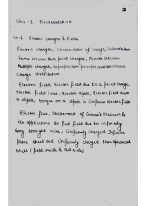 Unit - I Electrostatics
Ch-1 Electric Charges & Fields
Electric Charges, Conservation of Charge, Coulomb's law
Force between two point charges, forces between
Multiple charges, Superposition principle and continuous
Charge distribution
Electric field, electric field due to a point charge
electric field lines, Electric dipole, Electric field due to
a dipole, torque on a dipole in Uniform Electric field
Electric flux, Statement of Gauss's theorem &
its applications to find field due to infinitely
long straight wire, Uniformly charged Infinite
Plane sheet and Uniformly charged thin spherical
shell (field inside & outside)